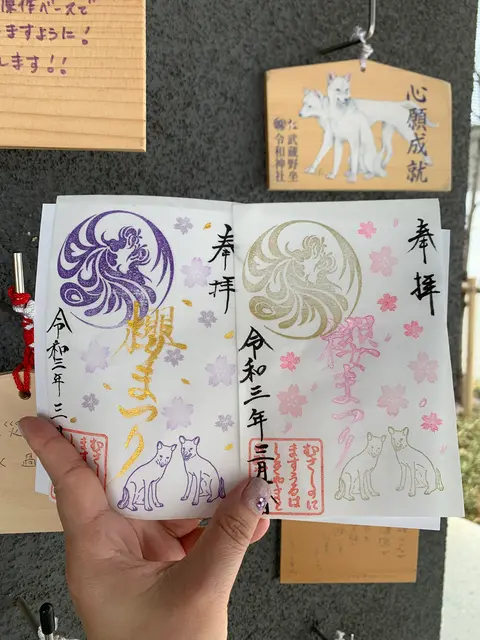 傑作ベースで
ますように!
します!!
心願成就
武蔵野坐
令和神社
奉拝
櫻まつり
令和三年三
むさ
ます
奉拝
櫻まつり
令和三年三月
むさしのに
ますうるは
しきやまと